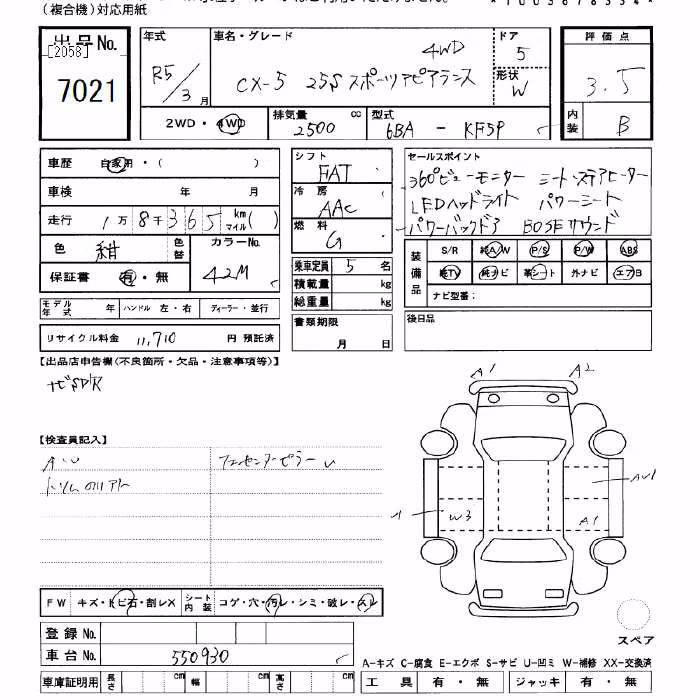 (複合機)対応用紙
出品No.
[2058]
7021
年式
R5/3月
車名・グレード
4WD
CX-5 25S スポーツアピアランス
ドア
5
形状
W
評価点
3.5
内装
B
2WD・4WD
排気量 cc
2500
型式
6BA - KF5P
車歴 自家用・( )
車検 年 月
走行 1万8千365 km マイル( )
色 紺 色替
カラーNo.
42M
保証書 有・無
モデル年式 年 ハンドル 左・右 ディーラー・並行
リサイクル料金 11,710 円 預託済
シフト
FAT
冷房
AAC
燃料
G
乗車定員 5 名
積載量 kg
総重量 kg
書類期限
月 日
セールスポイント
360°ビューモニター シート・ステアヒーター
LEDヘッドライト パワーシート
パワーバックドア BOSEサウンド
装備品
S/R 純A/W P/S P/W ABS
純TV 純ナビ 革シート 外ナビ エアB
ナビ型番:
後日品
【出品店申告欄(不良箇所・欠品・注意事項等)】
ナビSD/R
【検査員記入】
A1 A2
AU1
W3
A1
FW キズ・トビ石・割レX シート内装 コゲ・穴・汚レ・シミ・破レ・スレ
登録No.
車台No. 550930
車庫証明用 長さ cm 幅 cm 高さ cm
スペア
A-キズ C-腐食 E-エクボ S-サビ U-凹ミ W-補修 XX-交換済
工具 有・無 ジャッキ 有・無